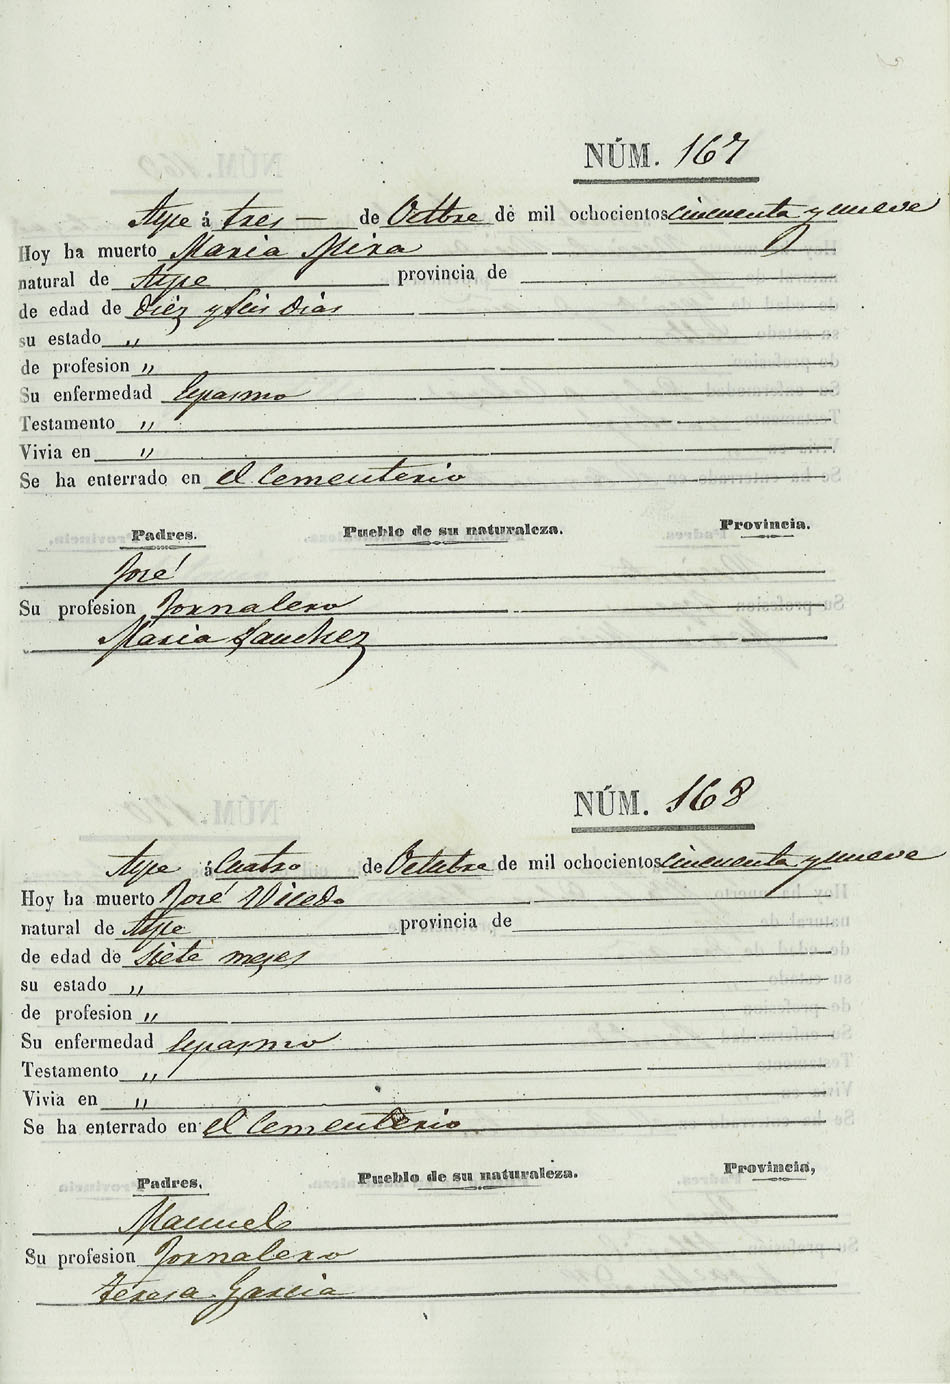 NÚM. 167
Aspe á tres — de Octbre de mil ochocientos cincuenta y nueve
Hoy ha muerto Maria Mira
natural de Aspe provincia de
de edad de diez y seis dias
su estado „
de profesion „
Su enfermedad Espasmo
Testamento „
Vivia en „
Se ha enterrado en el Cementerio
Padres. Pueblo de su naturaleza. Provincia.
José
Su profesion Jornalero
Maria Sanchez
NÚM. 168
Aspe á Cuatro de Octubre de mil ochocientos cincuenta y nueve
Hoy ha muerto José Vicedo
natural de Aspe provincia de
de edad de siete meses
su estado „
de profesion „
Su enfermedad Espasmo
Testamento „
Vivia en „
Se ha enterrado en el Cementerio
Padres. Pueblo de su naturaleza. Provincia,
Manuel
Su profesion Jornalero
Teresa Garcia